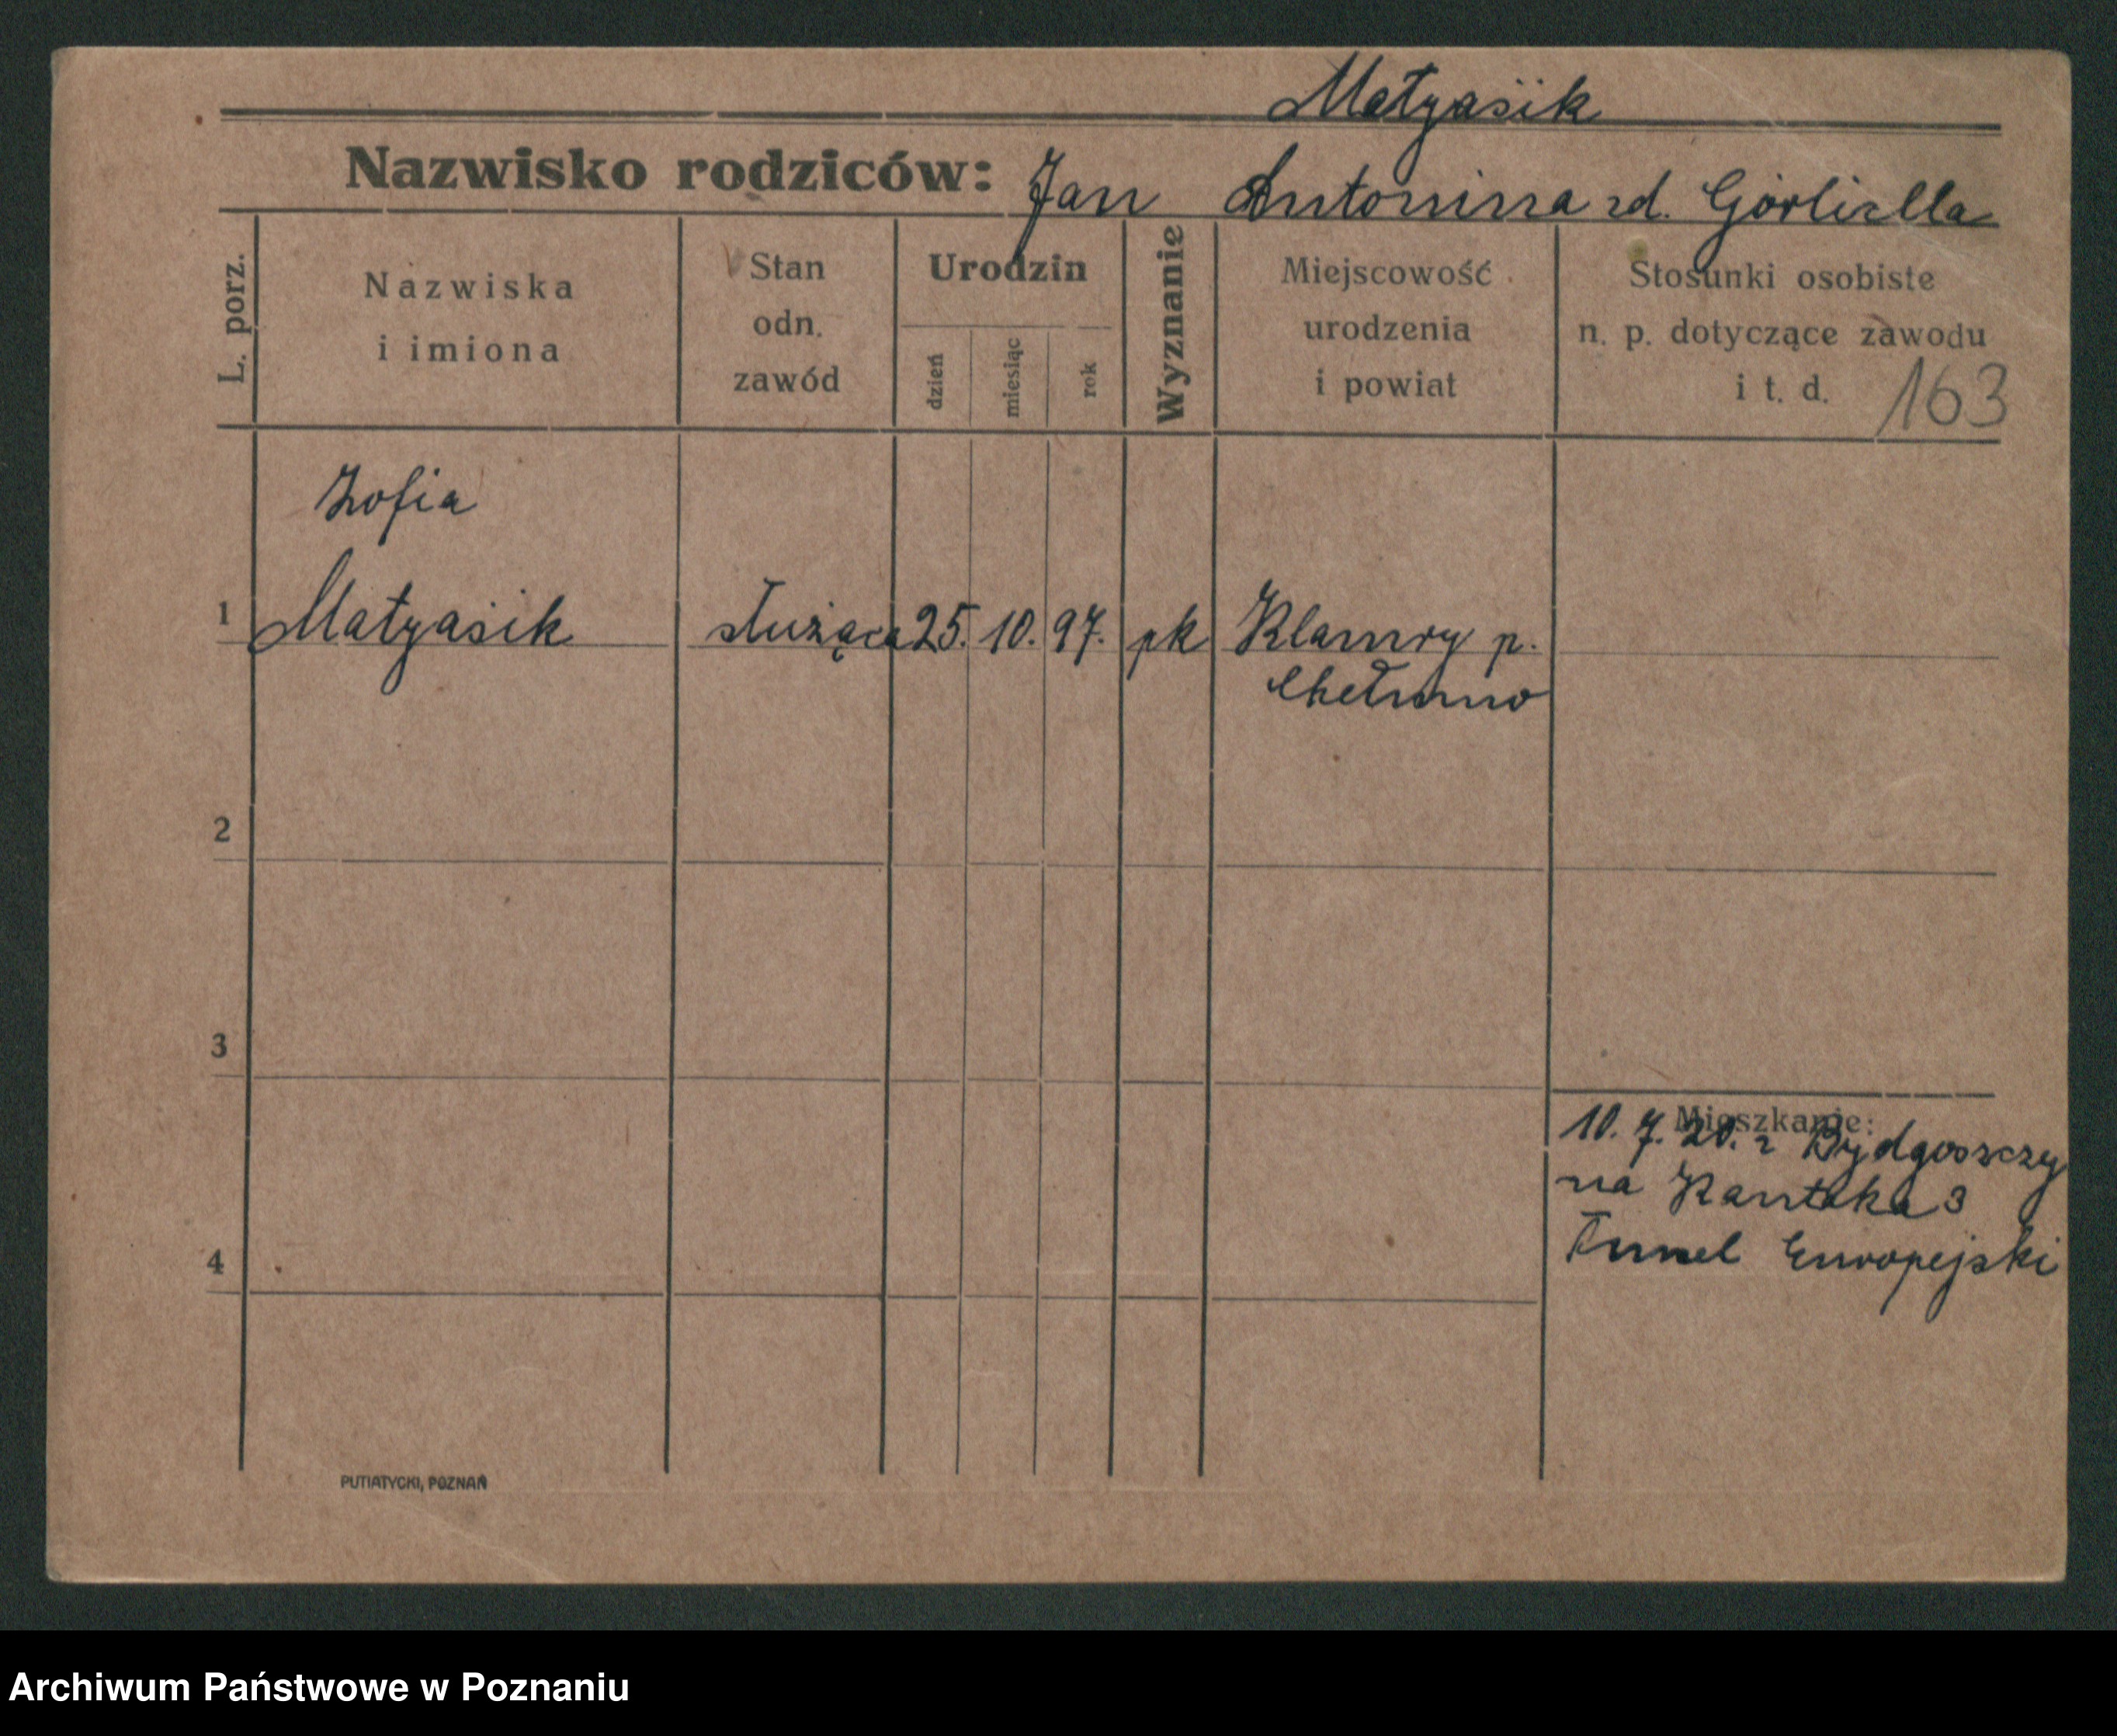 Matyasik
Nazwisko rodziców: Jan Antonina zd.
L. porz.
Nazwiska
i imiona
Stan
odn.
zawód
Urodzin
dzień
miesiąc
rok
Wyznanie
Miejscowość
urodzenia
i powiat
Stosunki osobiste
n. p. dotyczące zawodu
i t. d.
163
Zofia
1 Matyasik służąca 25. 10. 97. pk Klamry p.
Chełmno
2
3
Mieszkanie:
10. 7. 20. z Bydgoszczy
na Kantaka 3
4
Tunel Europejski
PUTIATYCKI, POZNAŃ
Archiwum Państwowe w Poznaniu